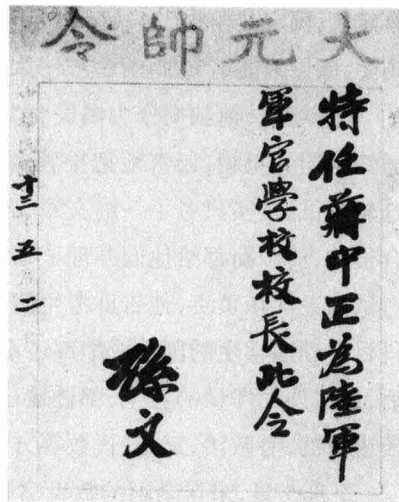 大元帥令
特任蔣中正為陸軍
軍官學校校長此令
孫文
十三 五 二